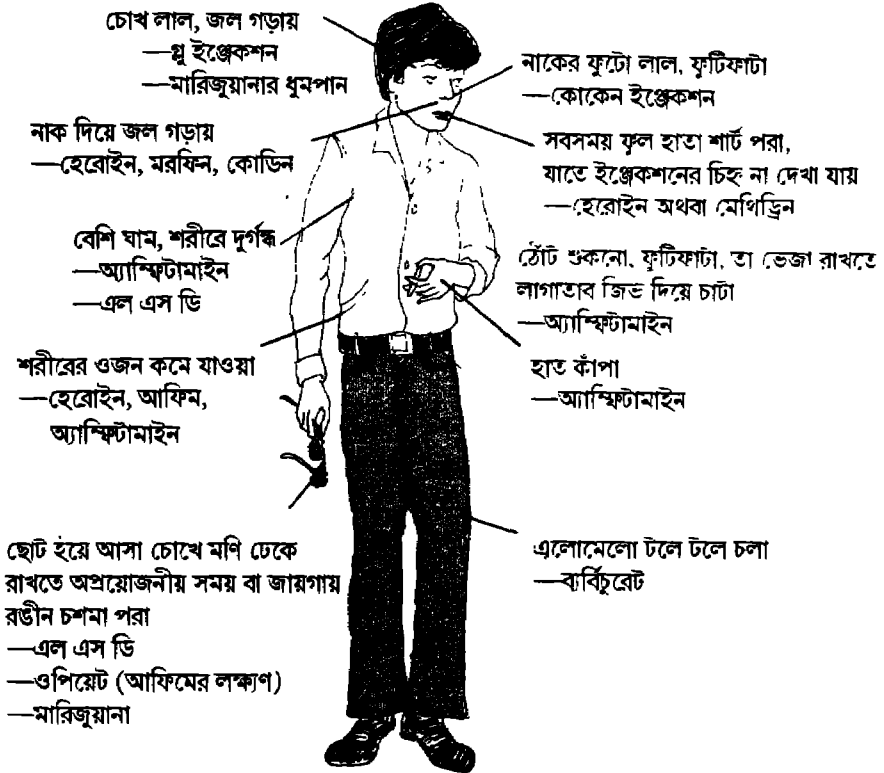 চোখ লাল, জল গড়ায়
—গ্লু ইঞ্জেকশন
—মারিজুয়ানার ধুমপান
নাক দিয়ে জল গড়ায়
—হেরোইন, মরফিন, কোডিন
বেশি ঘাম, শরীরে দুর্গন্ধ
—অ্যাম্ফিটামাইন
—এল এস ডি
শরীরের ওজন কমে যাওয়া
—হেরোইন, আফিম,
অ্যাম্ফিটামাইন
ছোট হয়ে আসা চোখে মণি ঢেকে
রাখতে অপ্রয়োজনীয় সময় বা জায়গায়
রঙীন চশমা পরা
—এল এস ডি
—ওপিয়েট (আফিমের লক্ষ্যণ)
—মারিজুয়ানা
নাকের ফুটো লাল, ফুটিফাটা
—কোকেন ইঞ্জেকশন
সবসময় ফুল হাতা শার্ট পরা,
যাতে ইঞ্জেকশনের চিহ্ন না দেখা যায়
—হেরোইন অথবা মেথিড্রিন
ঠোঁট শুকনো, ফুটিফাটা, তা ভেজা রাখতে
লাগাতাব জিভ দিয়ে চাটা
—অ্যাম্ফিটামাইন
হাত কাঁপা
—অ্যাম্ফিটামাইন
এলোমেলো টলে টলে চলা
—ব্যর্বিচুরেট